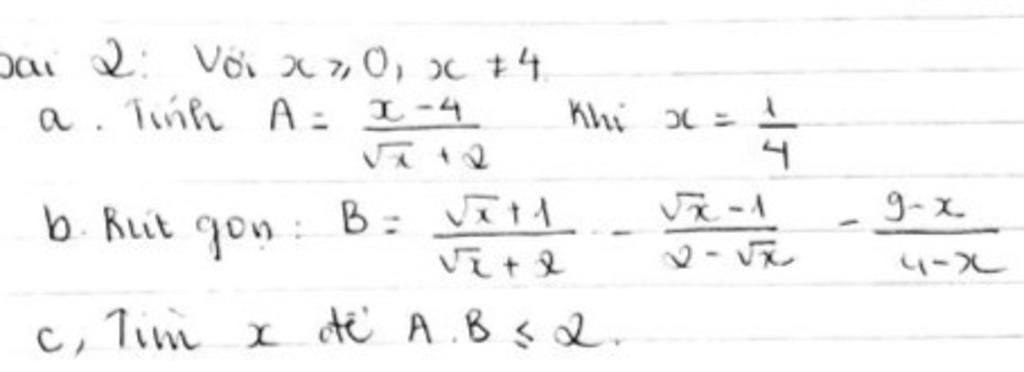 bài 2: Với x ⩾ 0, x ≠ 4
a. Tính A = (x - 4)/(√x + 2) Khi x = 1/4
b. Rút gọn: B = (√x + 1)/(√x + 2) - (√x - 1)/(2 - √x) - (9 - x)/(4 - x)
c, Tìm x để A.B ≤ 2.